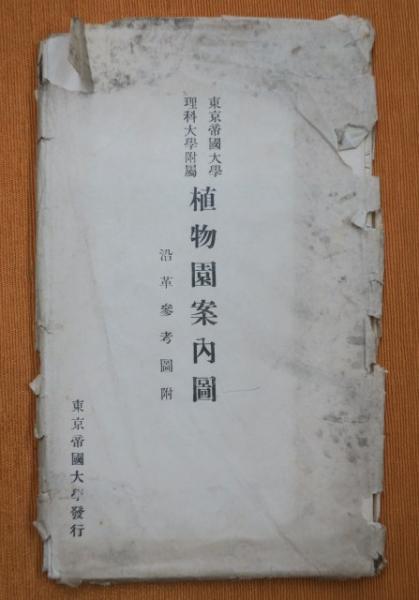 東京帝國大學
理科大學附屬
植物園案內圖
沿革參考圖附
東京帝國大學發行